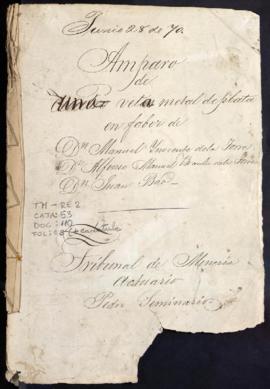 Junio 28 de 70.
Amparo
de
Una veta metal de plata
en fabor de
Dn. Manuel Ynocente de la Torre
Dn. Alfonso Manuel
Dn. Juan
TM-RE2
CAJA: 53
DOC: 110
FOL:
Tribunal de Mineria
Actuario
Pedro Seminario